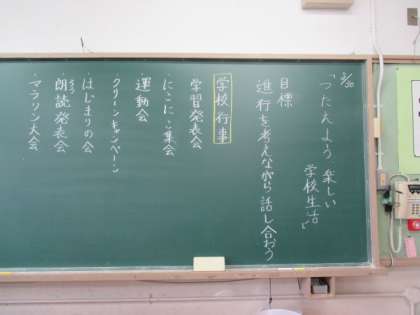 2/20
「つたえよう 楽しい
学校生活」
目標
進行を考えながら 話し合おう
学校行事
学習発表会
・にこにこ集会
運動会
クリーンキャンペーン
・はじまりの会
・朗読発表会
・マラソン大会